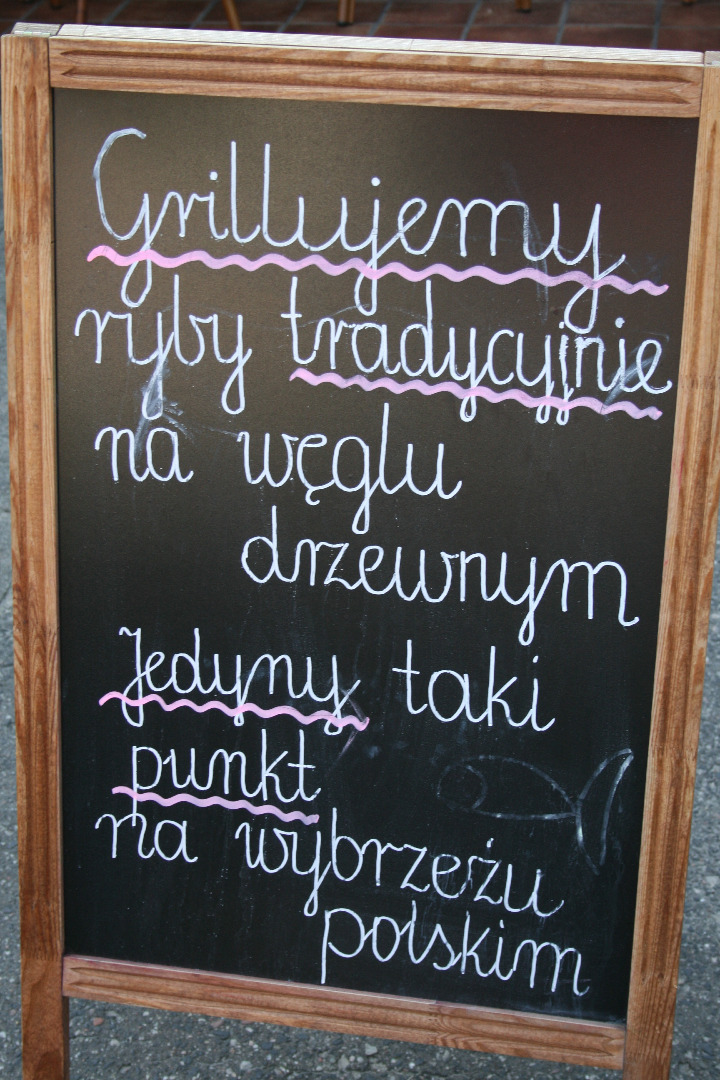 Grillujemy
ryby tradycyjnie
na węglu
drzewnym
Jedyny taki
punkt
na wybrzeżu
polskim